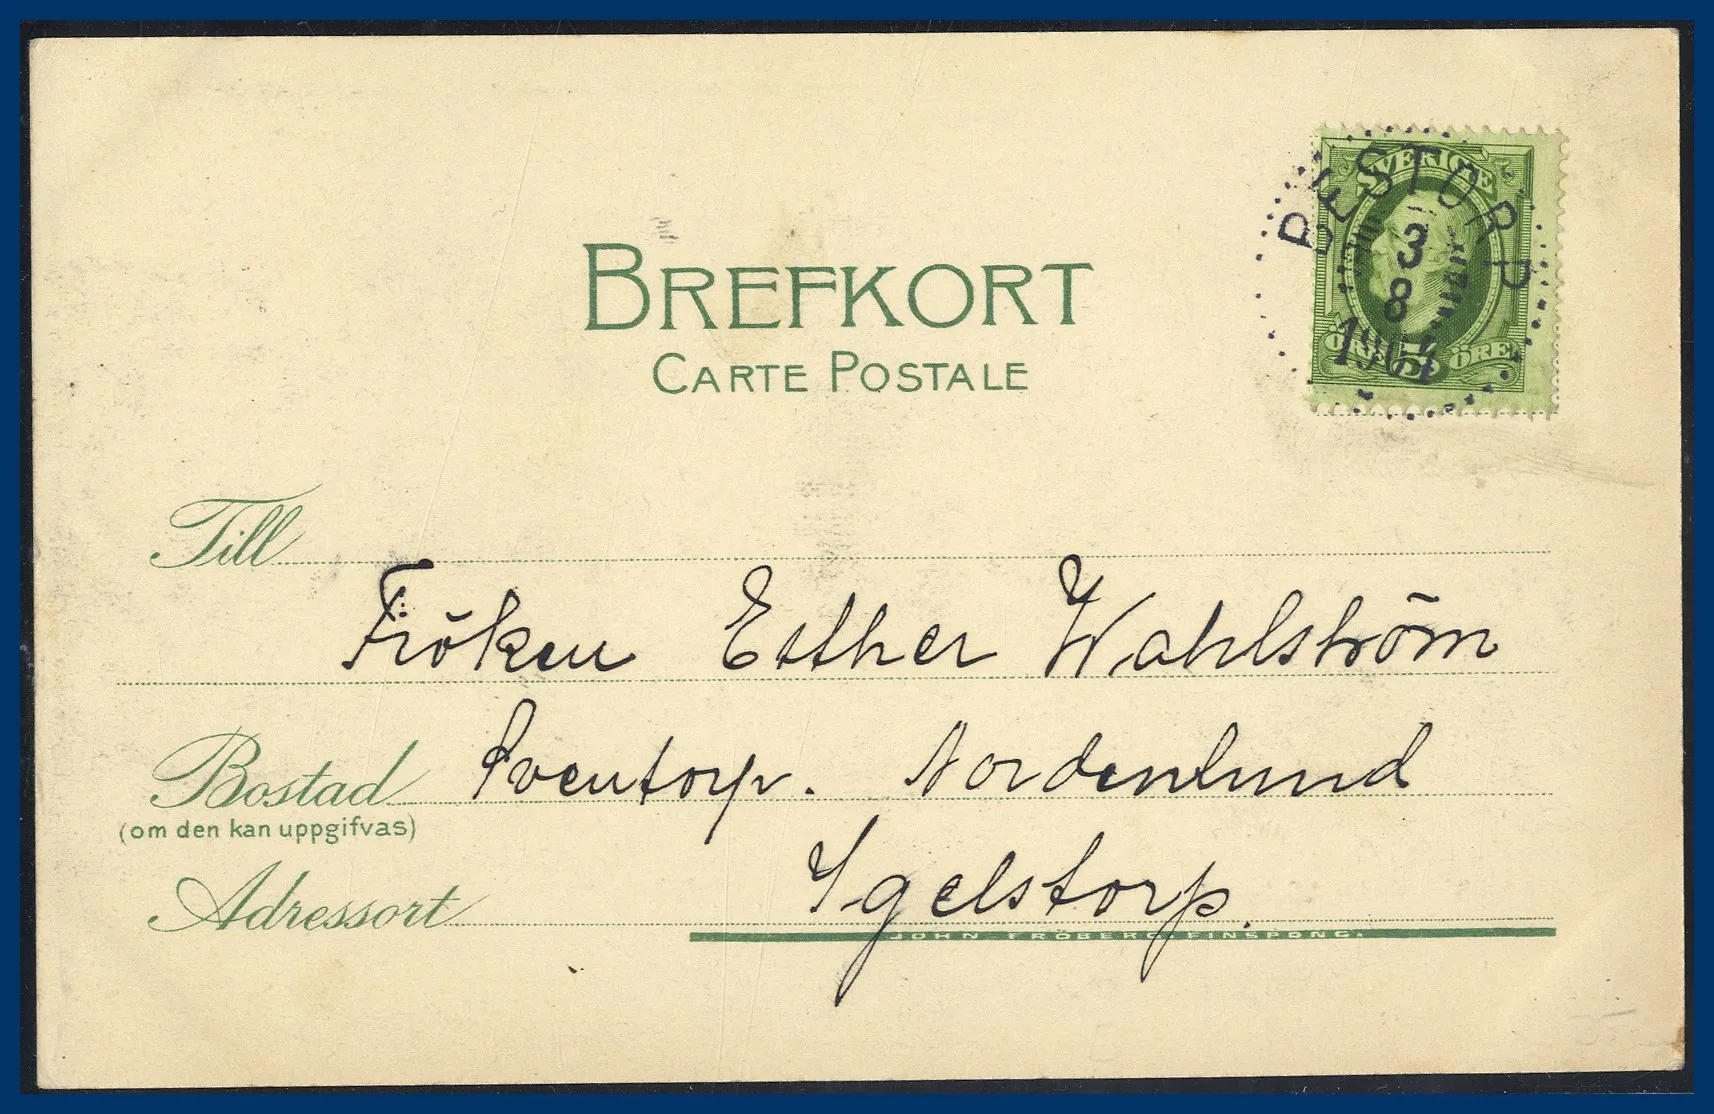 BREFKORT
CARTE POSTALE
SVERIGE
ÖRE 5 ÖRE
BESTORP
3
8
Till
Fröken Esther Wahlström
Bostad Sventorp. Nordenlund
(om den kan uppgifvas)
Adressort Igelstorp.
JOHN FRÖBERG FINSPONG.